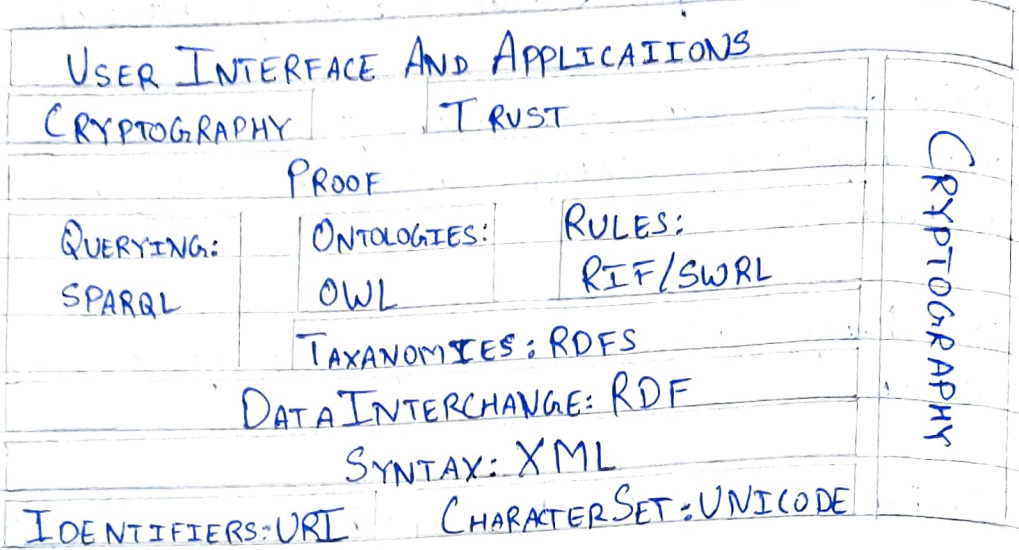 USER INTERFACE AND APPLICAIIONS
CRYPTOGRAPHY TRUST
PROOF
QUERYING: ONTOLOGIES: RULES:
SPARQL OWL RIF/SWRL
TAXANOMIES: RDFS
DATA INTERCHANGE: RDF
SYNTAX: XML
IDENTIFIERS: URI CHARACTER SET: UNICODE
CRYPTOGRAPHY